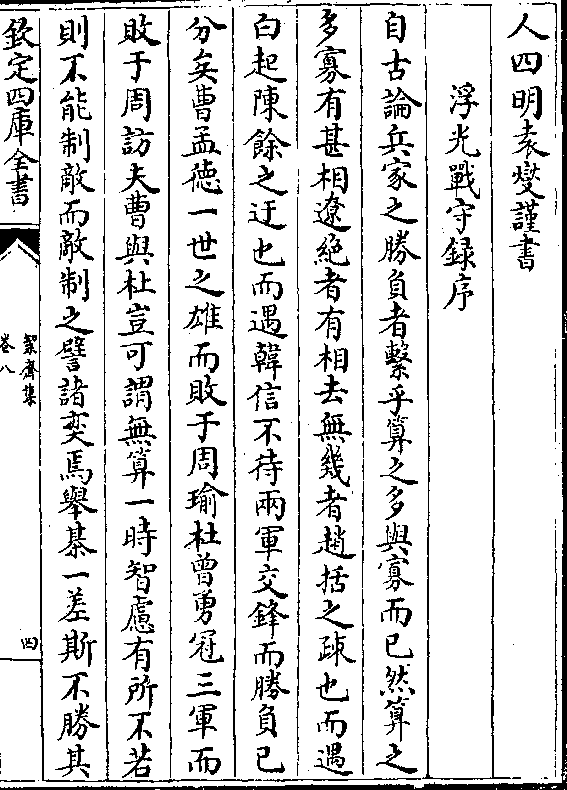 人四明袁燮謹書
浮光戰守録序
自古論兵家之勝負者繫乎算之多與寡而已然算之
多寡有甚相遼絶者有相去無幾者趙括之疎也而遇
白起陳餘之迂也而遇韓信不待兩軍交鋒而勝負已
分矣曹孟德一世之雄而敗于周瑜杜曾勇冠三軍而
敗于周訪夫曹與杜豈可謂無算一時智慮有所不若
則不能制敵而敵制之譬諸奕焉舉棊一差斯不勝其
欽定四庫全書
絜齋集
卷八
四